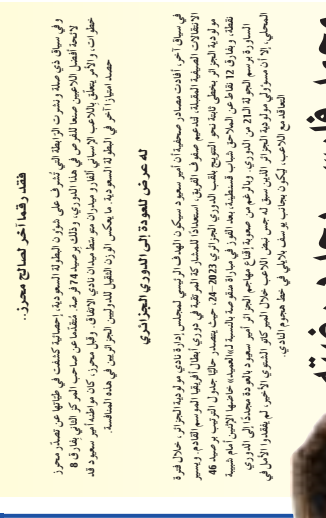 فقد رقما آخر لصالح محرز..
وفي سياق ذي صلة ونشرت الرابطة التي تُشرف على شؤون البطولة السعودية، إحصائية كشفت في طيّاتها عن تصدّر محرز
لائحة أفضل اللاعبين صنعا للفرص في هذا الدوري، وذلك برصيد 74 فرصة، متقدّما عن صاحب المركز الثاني بفارق 8
خطوات، والأمر يتعلّق باللاعب الإسباني ألفارو ميدران متوسط ميدان نادي الاتفاق. وقبل محرز، كان مواطنه أمير سعيود قد
حصد امتيازا آخر في البطولة السعودية، ما يعكس الوزن الثقيل للدوليين الجزائريين في هذه المنافسة.
له عرض للعودة إلى الدوري الجزائري
في سياق آخر، أفادت مصادر صحفية أن أمير سعيود سيكون الهدف الرئيسي لمجلس إدارة نادي مولودية الجزائر، خلال فترة
الانتقالات الصيفية المقبلة، لتدعيم صفوف الفريق، استعدادًا للمشاركة المرتقبة في دوري أبطال أفريقيا الموسم القادم. ويسير
مولودية الجزائر بخطى ثابتة نحو التتويج بلقب الدوري الجزائري 2023-24، حيث يتصدر حاليًا جدول الترتيب برصيد 46
نقطة، وبفارق 12 نقاط عن الملاحق شباب قسنطينة، بعد الفوز في مباراة منقوصة بالنسبة لـ«العميد» خاضها الإثنين أمام شبيبة
الساورة برسم الجولة الـ21 من الدوري. وبالرغم من صعوبة إقناع مهاجم الجزائر أمير سعيود بالعودة مجددًا إلى الدوري
المحلي، إلا أن مسؤولي مولودية الجزائر الذين سبق له جس نبض اللاعب خلال الميركاتو الشتوي الأخير، لم يفقدوا الأمل في
التعاقد مع اللاعب، ليكون بجانب يوسف بلايلي في خط هجوم النادي.